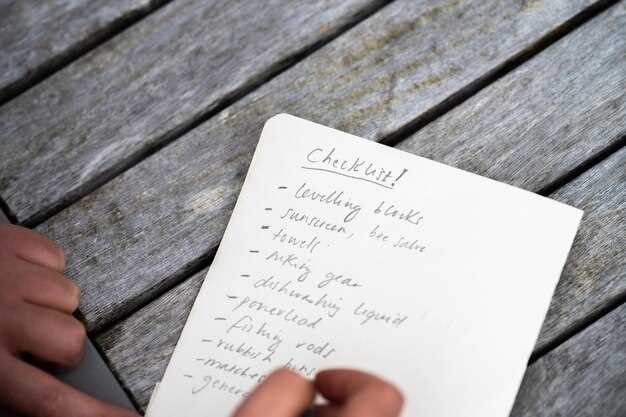 Checklist!
- levelling blocks
- sunscreen, bee salve
- towels
- hiking gear
- dishwashing liquid
- powerlead
- fishing rods
- rubbish bins
- matches
- gener